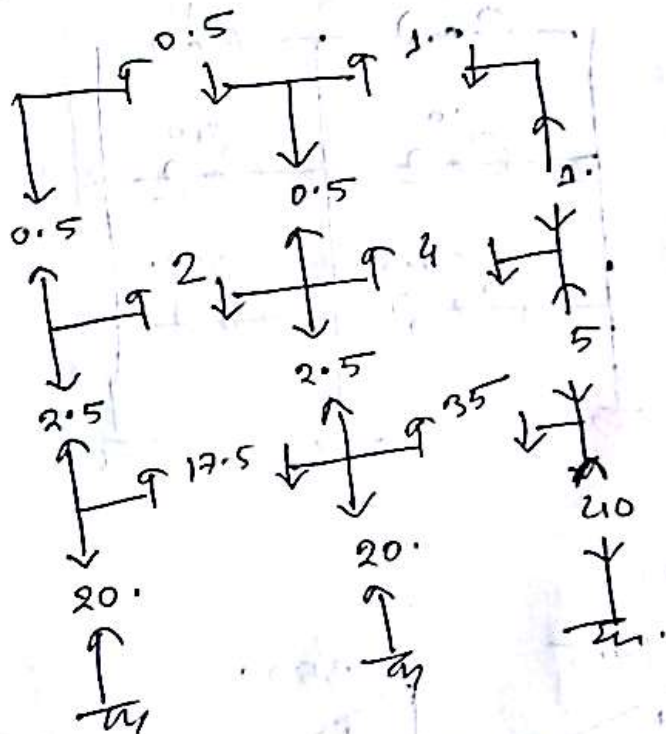 0.5 1.
0.5 0.5 1.
2 4
2.5 2.5 5
17.5 35
20. 20. 40